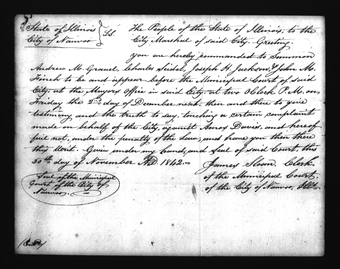 State of Illinois } Sct
City of Nauvoo
The People of the State of Illinois, to the
City Marshal of said City, Greeting.
you are hereby commanded to Summon
Andrew M. Joseph H. Jackson, & John M.
Finch to be and appear before the Municipal Court of said
City, at the Mayors Office in said City, at two OClock P.M. on
Friday the 2nd day of December next then and there to give
testimony, and the truth to say, touching a certain complaint
made on behalf of the City, against Amos Davis, and hereof
fail not, under the penalty of the law; and have you then there
this Writ. Given under my hand, and seal of said Court, this
30th day of November AD. 1842.
James Sloan Clerk
of the Municipal Court,
of the City of Nauvoo, Ills.
Seal of the Municipal
Court of the City of
Nauvoo